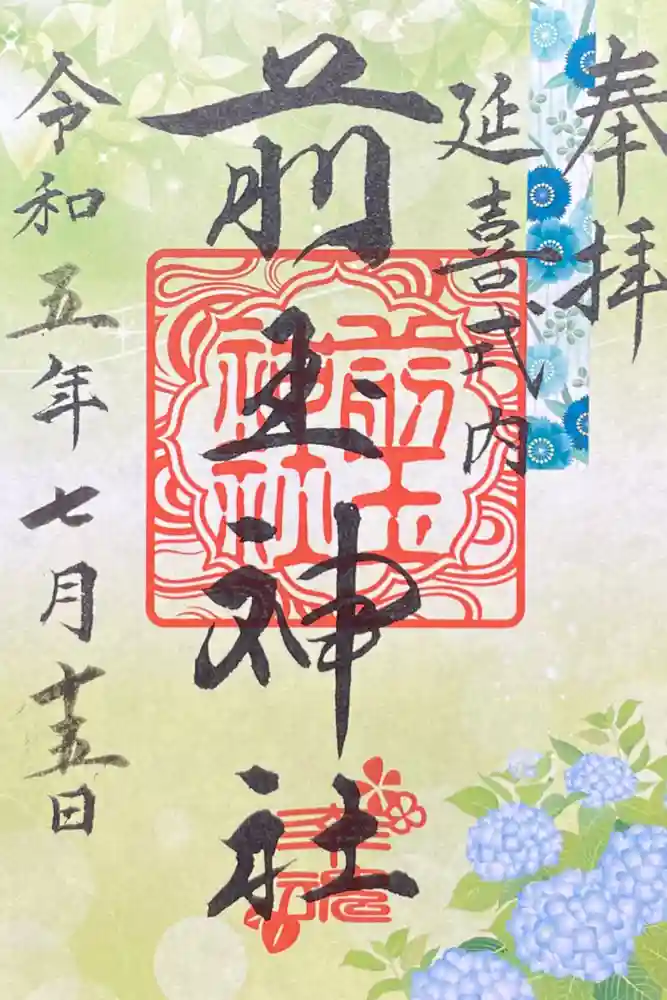 奉拝
延喜式内
前玉神社
前玉
神社
令和五年七月十五日